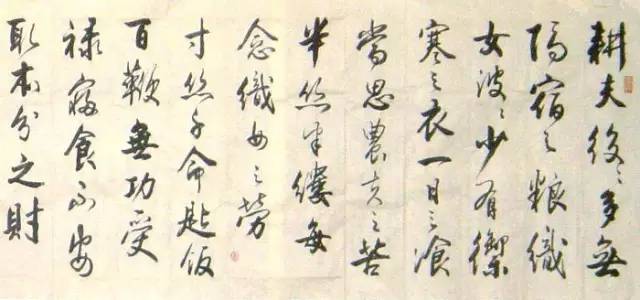 耕夫役〻多無
隔宿之粮織
女波〻少有禦
寒之衣一日三飡
當思農夫之苦
半丝半縷每
念織女之勞
寸丝千命匙飯
百鞭無功受
禄寢食不安
取本分之財